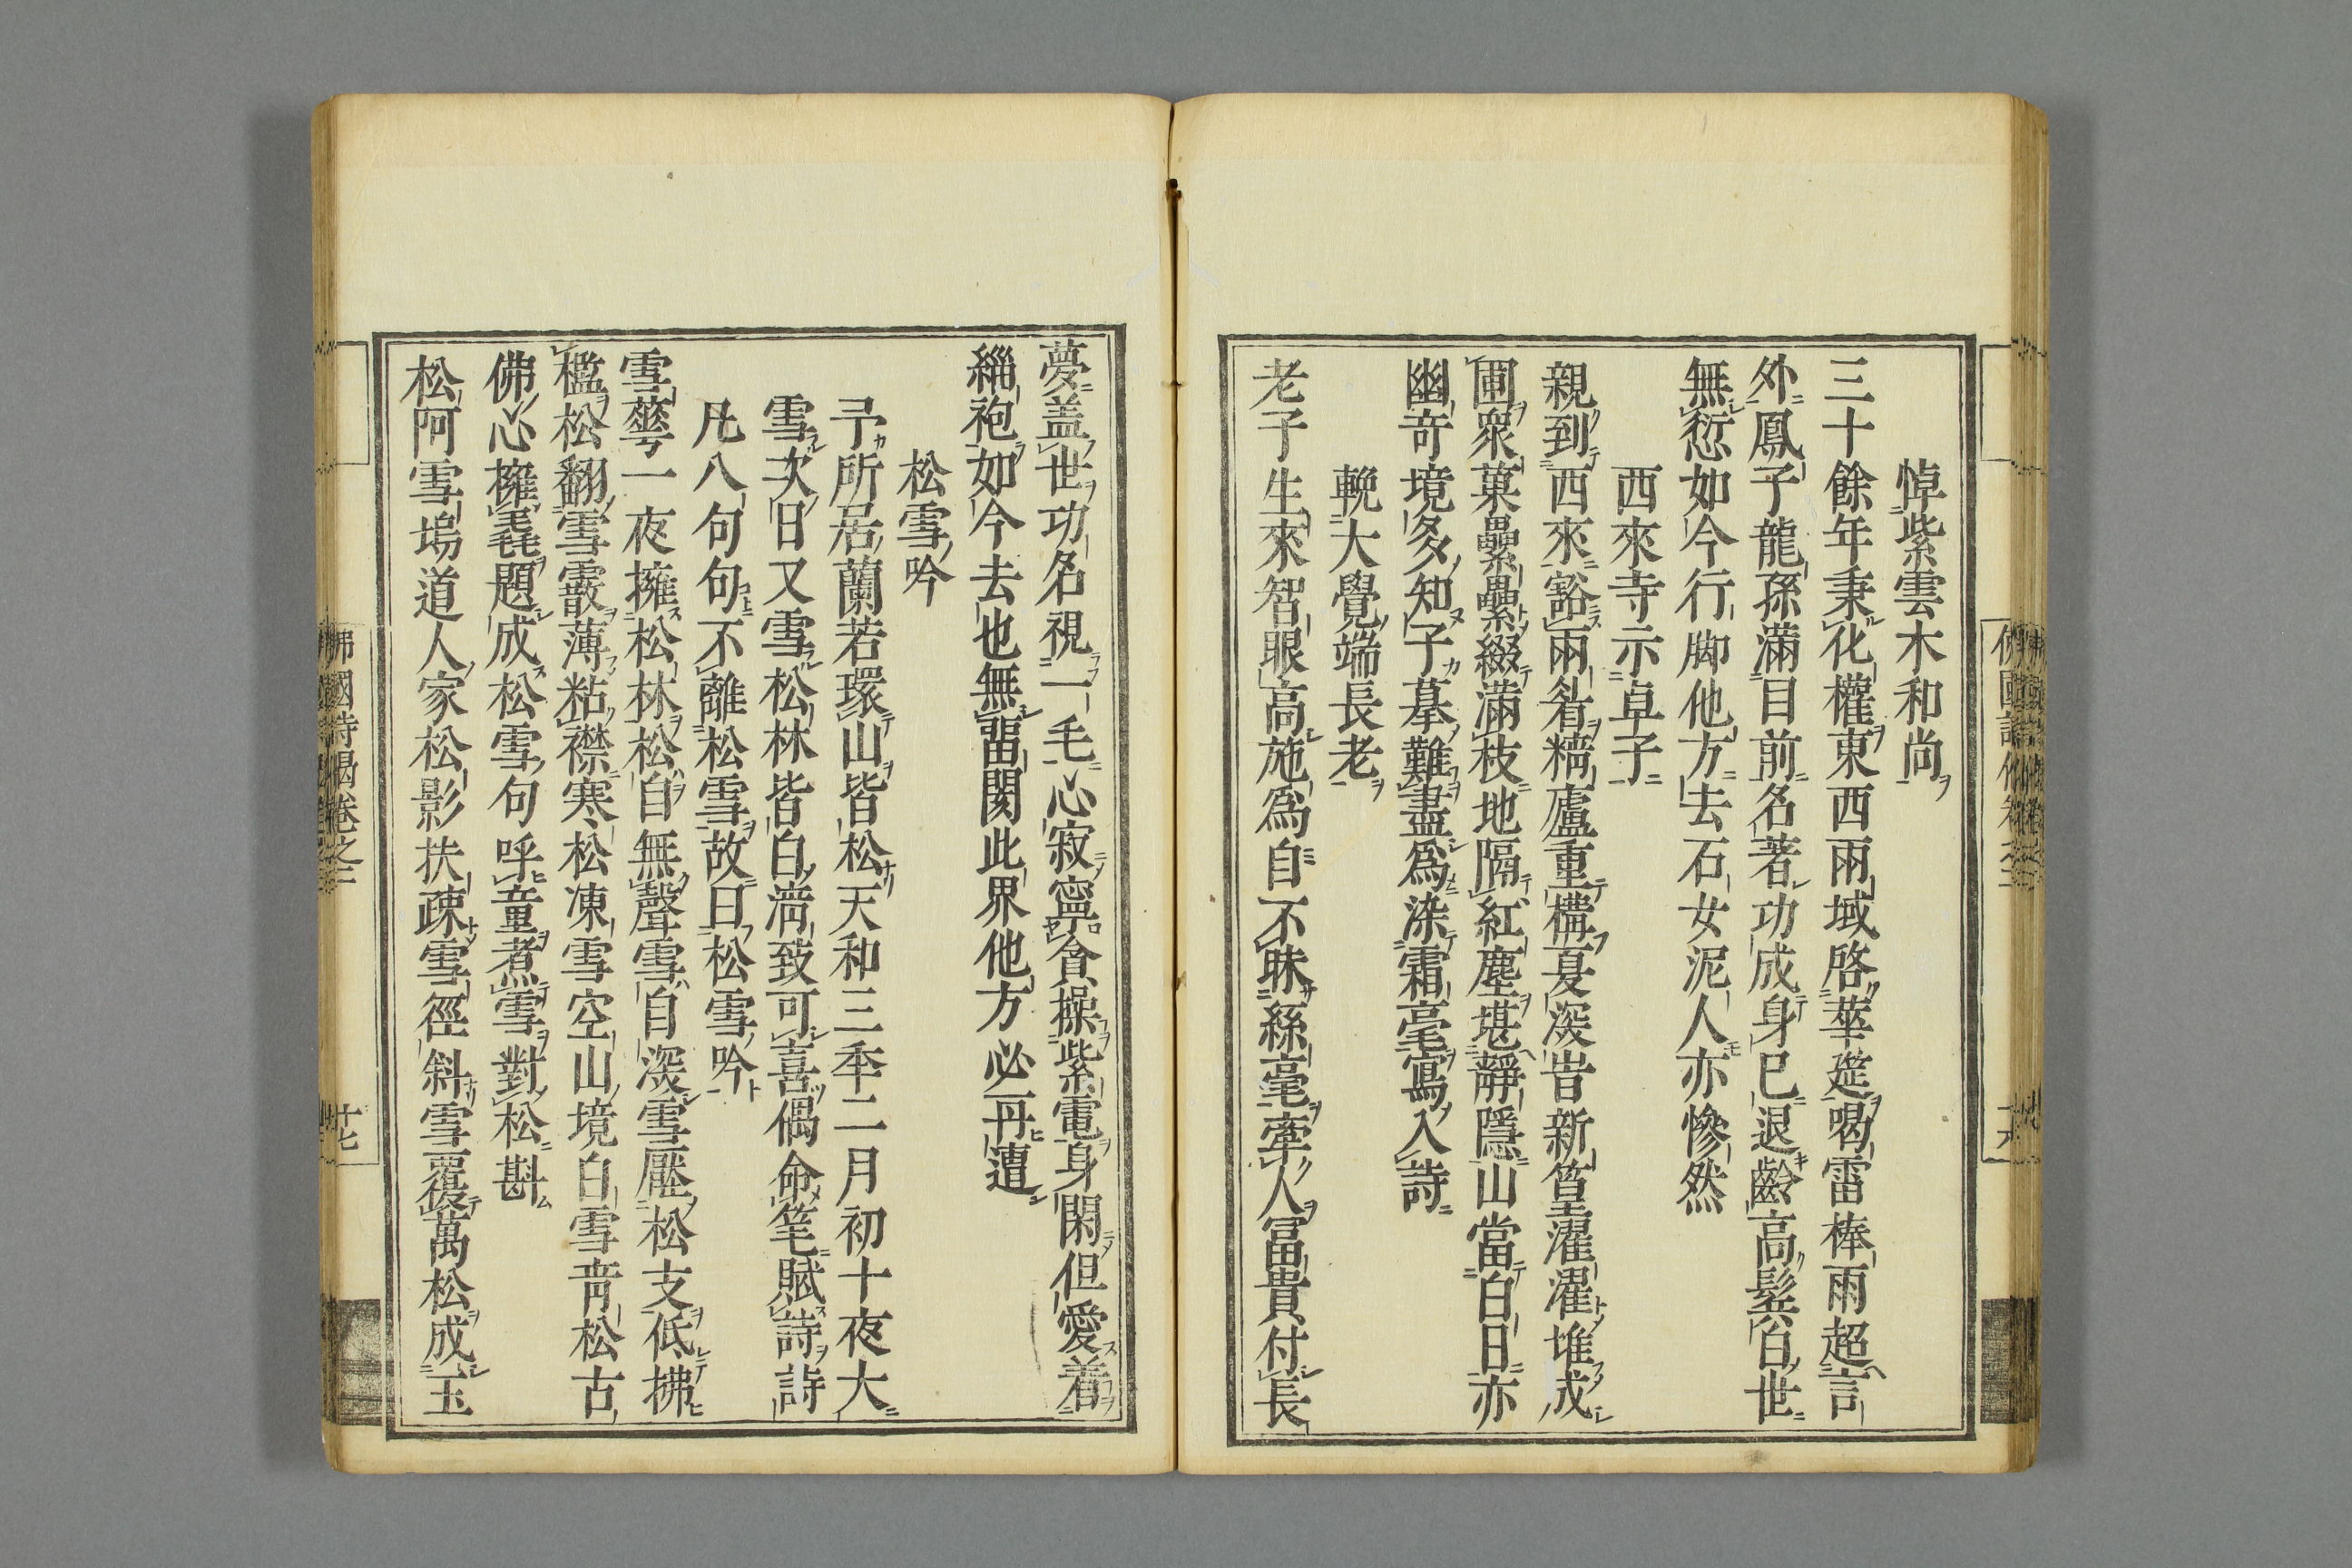 悼紫雲木和尚
三十餘年秉化權東西兩域啓華筵喝雷棒雨超言
外鳳子龍孫滿目前名著功成身已退齡高髮白世
無愆如今行脚他方去石女泥人亦慘然
西來寺示卓子
親到西來豁兩眥精廬重構夏深時新篁濯濯堆成
圃衆菓纍纍綴滿枝地隔紅塵堪靜隱山當白日亦
幽奇境多知子摹難盡爲染霜毫寫入詩
輓大覺端長老
老子生來智眼高施爲自不昧絲毫牽人富貴付長
夢蓋世功名視一毛心寂寧貪操紫電身閑但愛着
緇袍如今去也無畱関此界他方必再遭
松雪吟
予所居蘭若環山皆松天和三年二月初十夜大
雪次日又雪松林皆白淸致可喜偶命筆賦詩詩
凡八句句不離松雪故曰松雪吟
雪華一夜擁松林松自無聲雪自深雪壓松支低拂
檻松翻雪霰薄粘襟寒松凍雪空山境白雪靑松古
佛心擁毳題成松雪句呼童煮雪對松斟
松阿雪塢道人家松影扶疎雪徑斜雪覆萬松成玉
佛國詩偈卷之二
十七